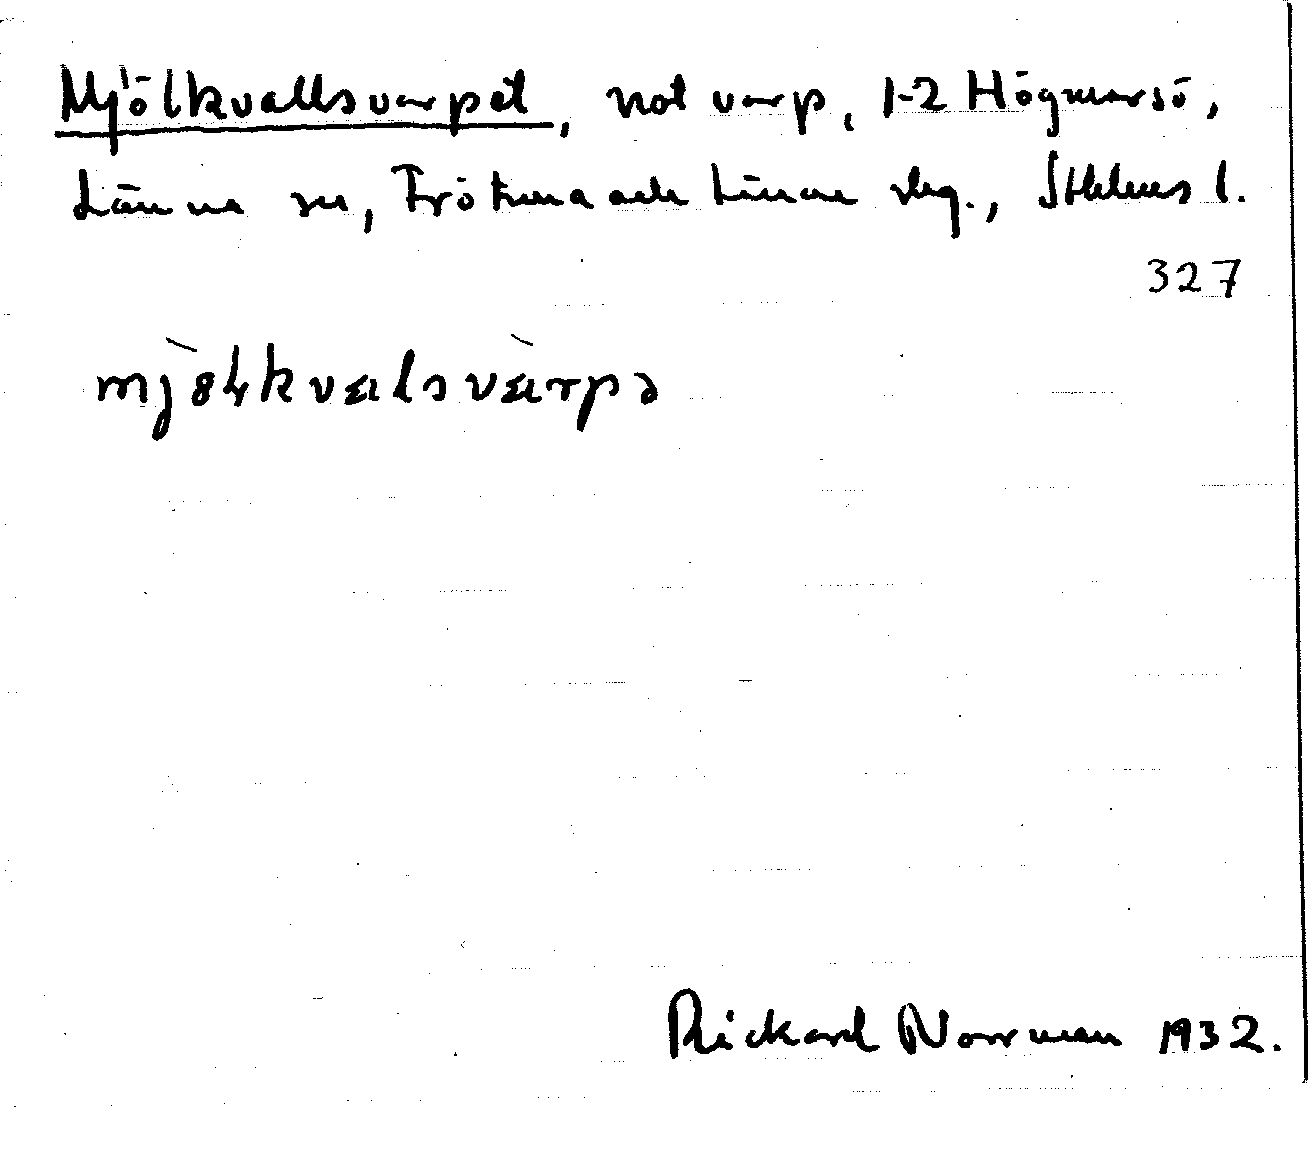 Mjölkvallsvarpet, notvarp, 1-2 Högmarsö,
Länna sn, Frötuna och Länna skg., Sthlms l.
327
mjò̈lkvalsvàrpə
Rickard Norrman 1932.